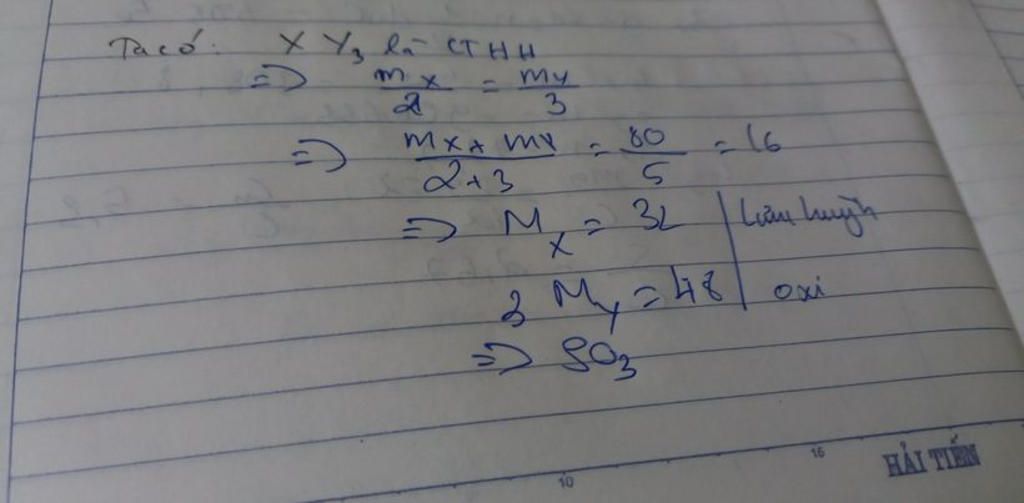 Ta có: XY₃ là CTHH
=> mX/2 = mY/3
=> mX + mY/2+3 = 80/5 = 16
=> Mₓ = 32 | lưu huỳnh
3 M_Y = 48 | oxi
=> SO₃
16
10
HẢI TIẾN